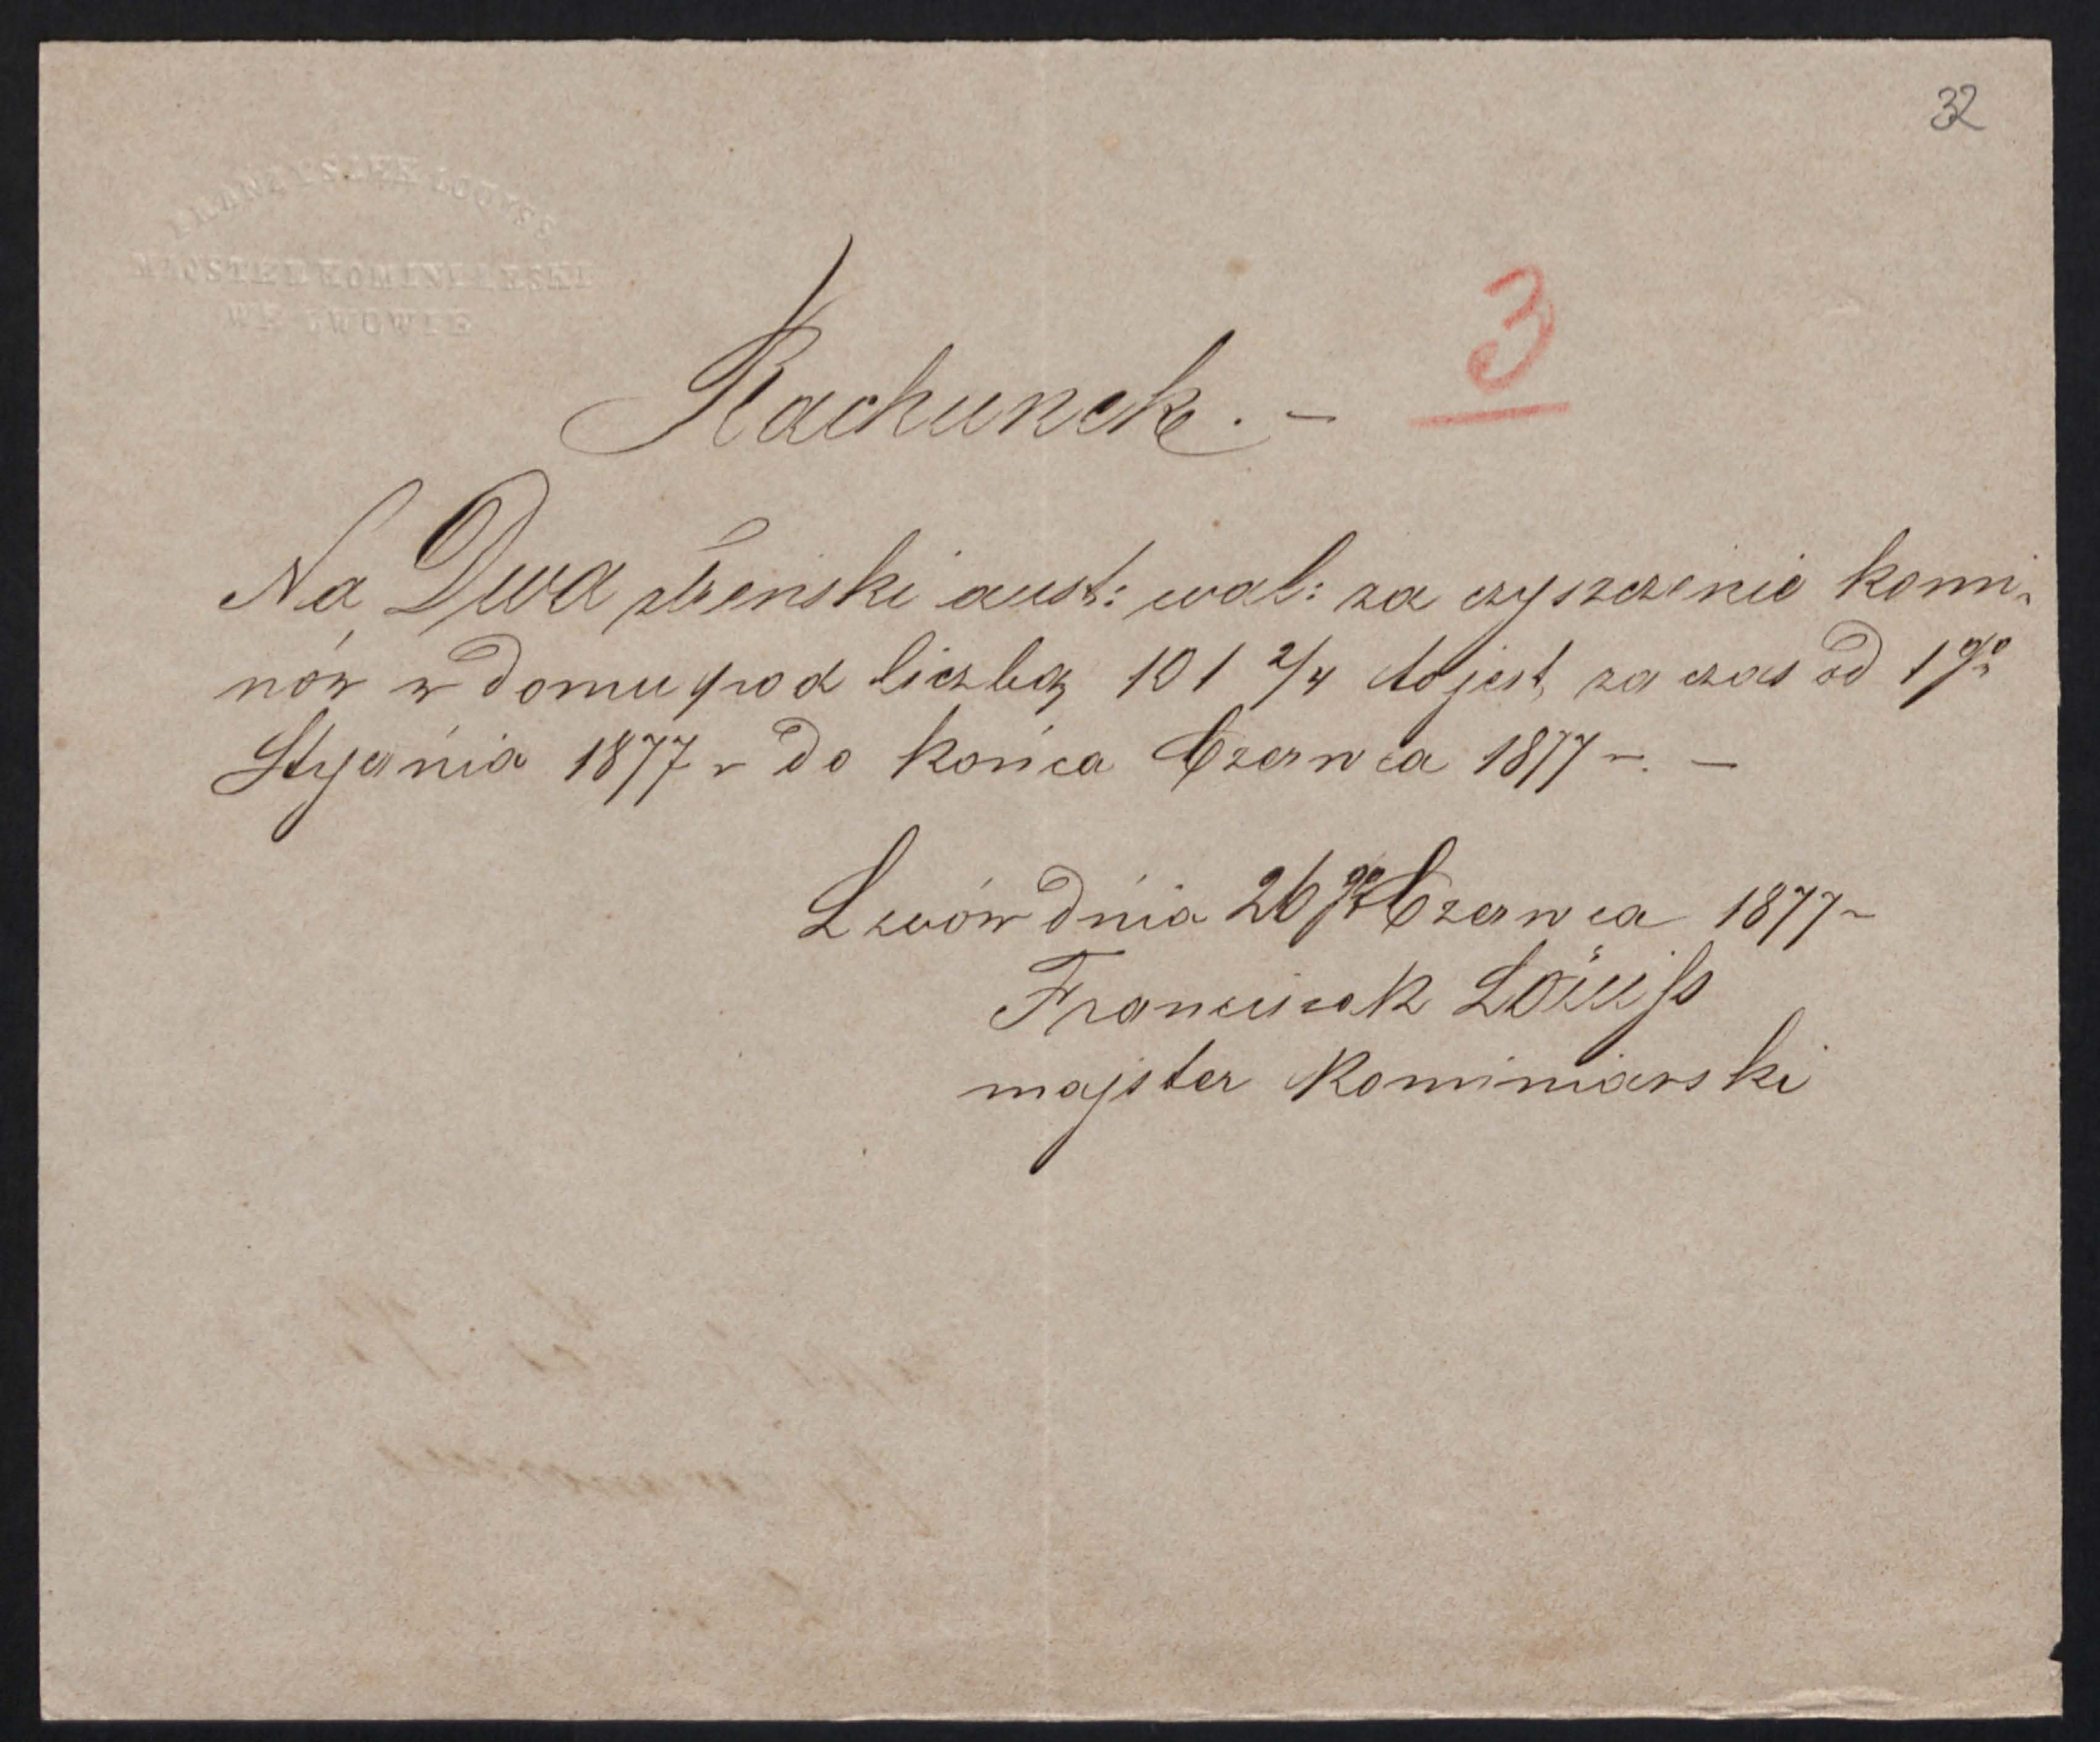 32
FRANCISZEK LOUISS
MAJSTER KOMINIARSKI
WE LWOWIE
3
Rachunek. –
Na Dwa reński aust: wal: za czyszczenie komi-
nów w domu pod liczbą 101 2/4 to jest, za czas od 1go
Stycznia 1877 r do końca Czerwca 1877 r. –
Lwów dnia 26go Czerwca 1877 r
Franciszek Löuiss
majster kominiarski